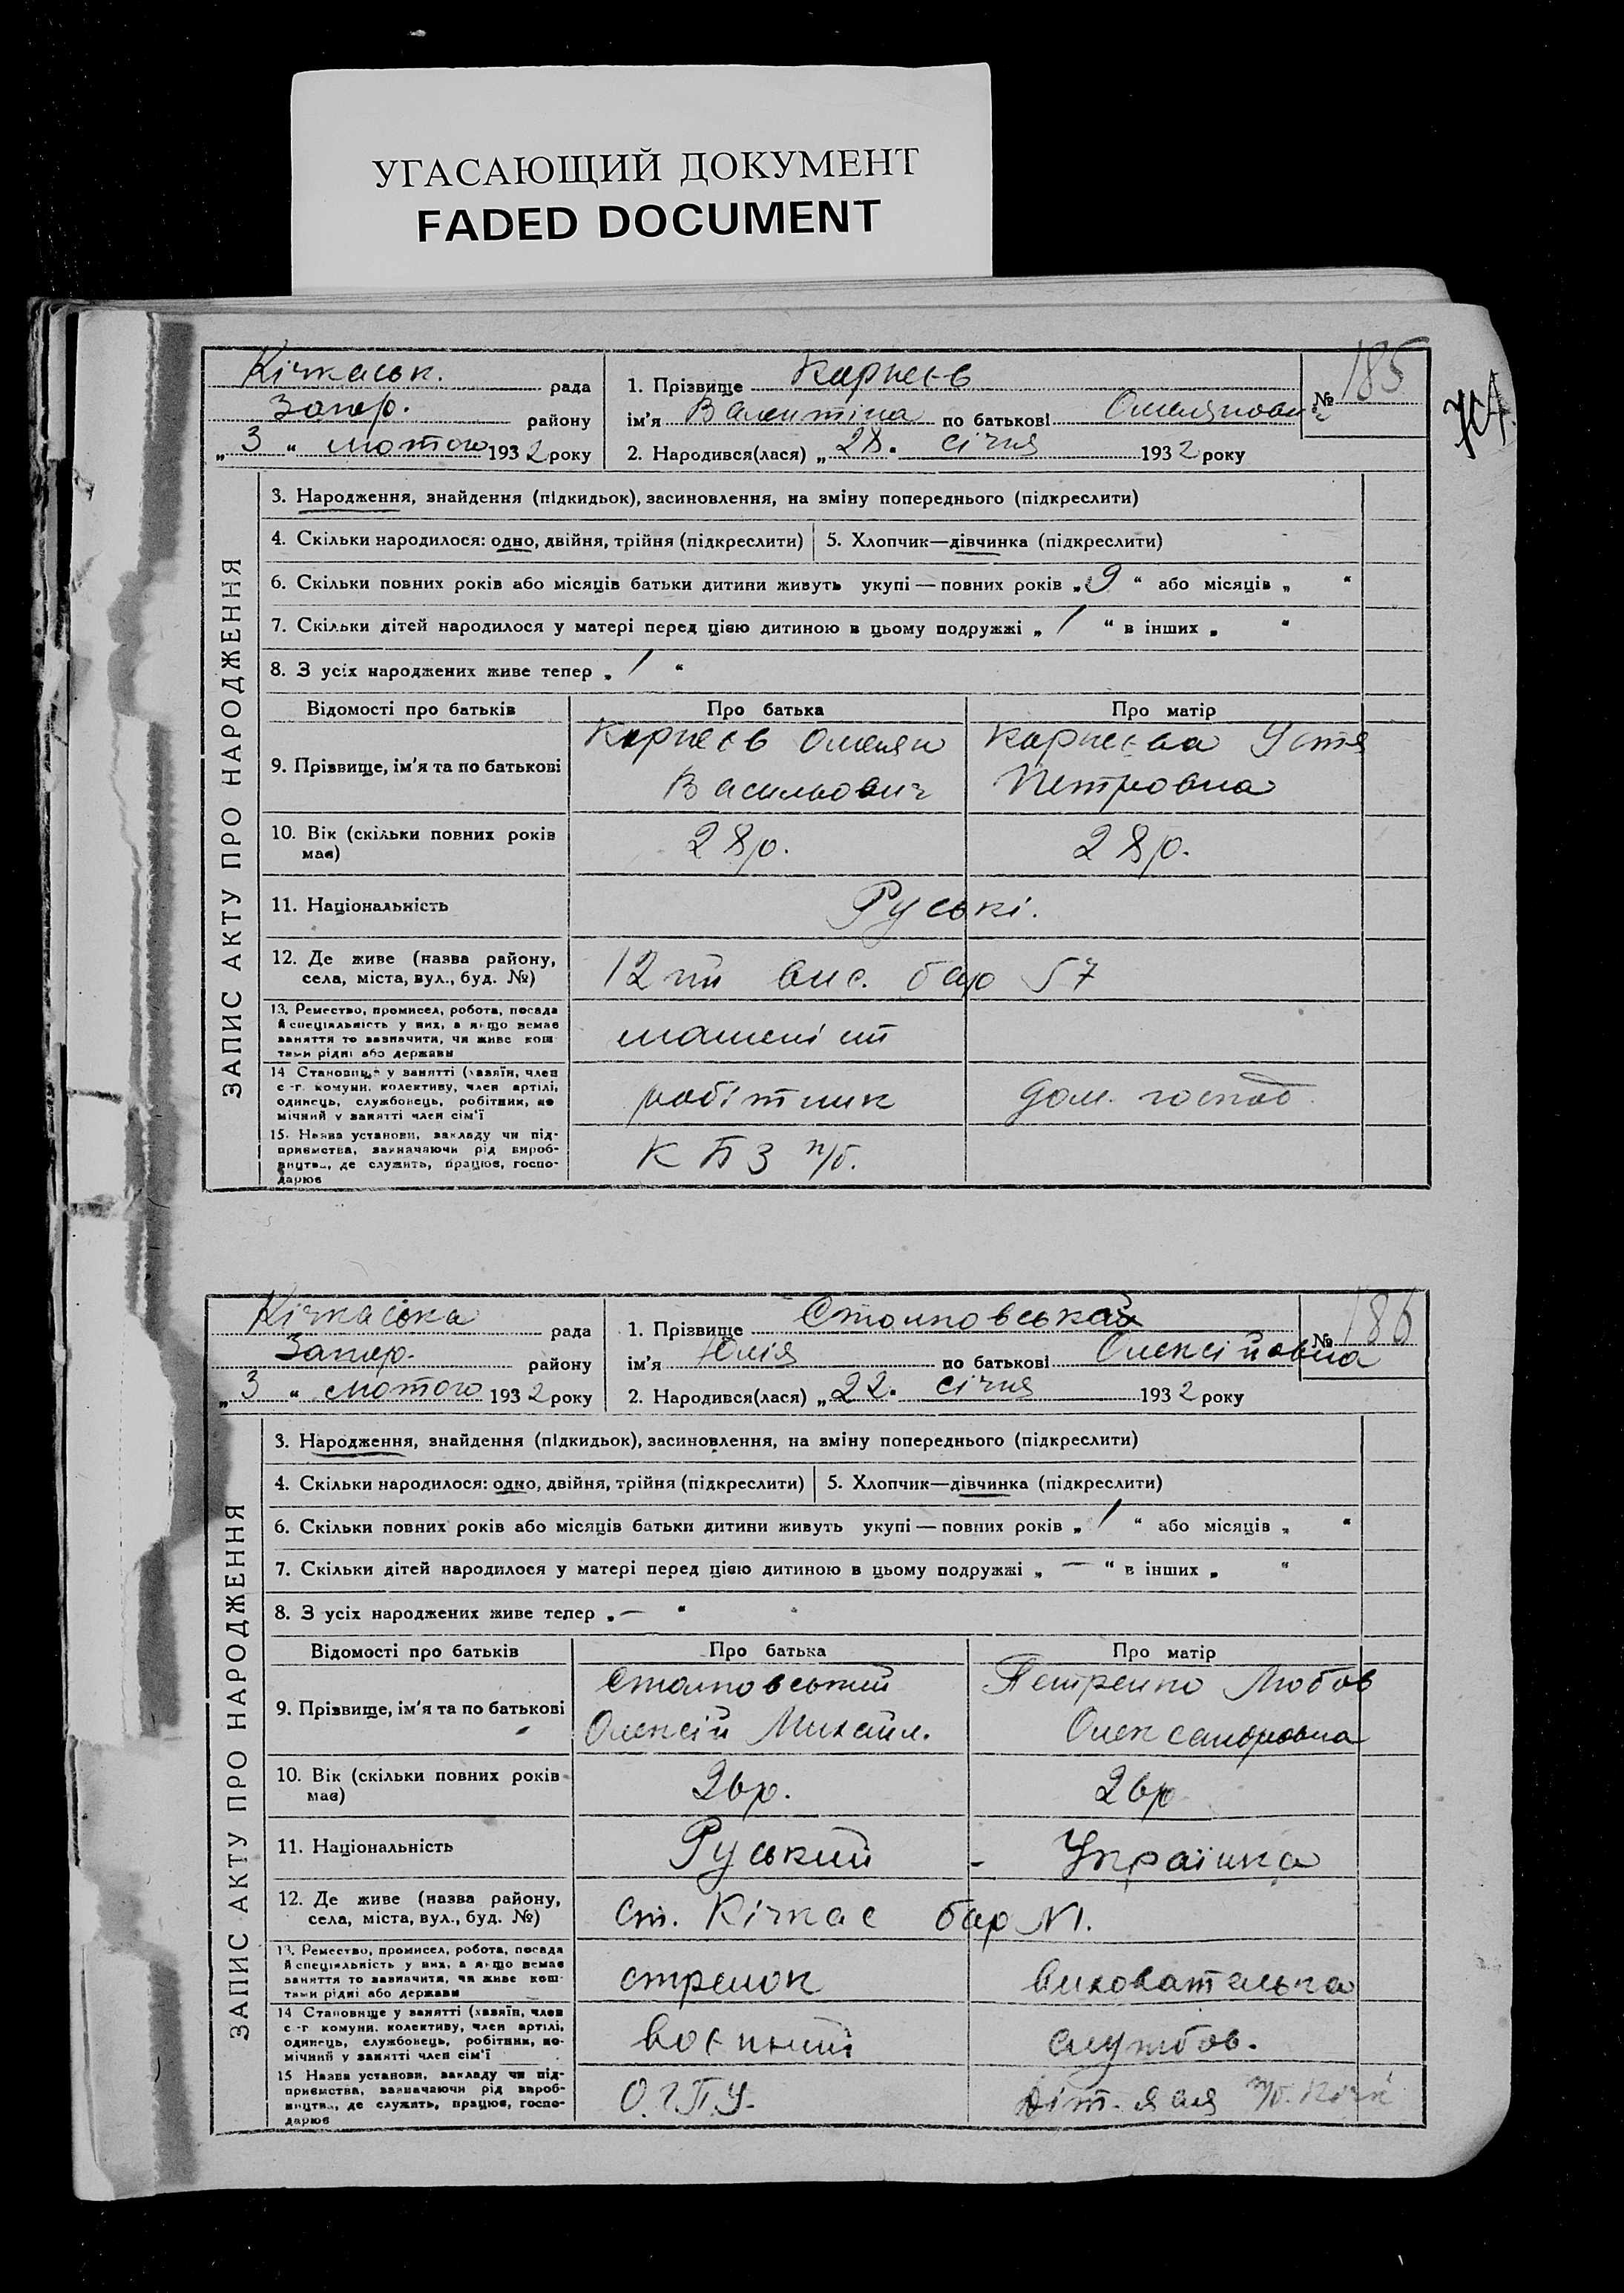 УГАСАЮЩИЙ ДОКУМЕНТ
FADED DOCUMENT
Кічкаськ. рада
Запор. району
„ 3 “ лютого 1932 року
1. Прізвище Карнєєв
ім'я Валентіна по батькові Омеляновн
2. Народився(лася) „ 28. січня 1932 року
№ 185
ЗАПИС АКТУ ПРО НАРОДЖЕННЯ
3. Народження, знайдення (підкидьок), засиновлення, на зміну попереднього (підкреслити)
4. Скільки народилося: одно, двійня, трійня (підкреслити) 5. Хлопчик—дівчинка (підкреслити)
6. Скільки повних років або місяців батьки дитини живуть укупі — повних років „ 9 “ або місяців „ “
7. Скільки дітей народилося у матері перед цією дитиною в цьому подружжі „ 1 “ в інших „ “
8. З усіх народжених живе тепер „ 1 “
Відомості про батьків Про батька Про матір
9. Прізвище, ім'я та по батькові
Карнєєв Омелян
Васильович
Карнєєва Устя
Петровна
10. Вік (скільки повних років
має)
28р. 28р.
11. Національність Руські.
12. Де живе (назва району,
села, міста, вул., буд. №)
12 ти вис. бар 57
13. Ремество, промисел, робота, посада
й спеціяльність у них, а якщо немає
заняття то зазначити, чи живе кош-
тами рідні або держави
машиніст
14 Становище у занятті (хазяїн, член
с.-г. комуни, колективу, член артілі,
одинець, службовець, робітник, по-
мічний у занятті член сім'ї
робітник дом. господ.
15. Назва установи, закладу чи під-
приємства, зазначаючи рід вироб-
ництва, де служить, працює, госпо-
дарює
К Б З п/б.
Кічкаська рада
Запор. району
„ 3 “ лютого 1932 року
1. Прізвище Столповська
ім'я Юлія по батькові Олексійовна
2. Народився(лася) „ 22. січня 1932 року
№ 186
ЗАПИС АКТУ ПРО НАРОДЖЕННЯ
3. Народження, знайдення (підкидьок), засиновлення, на зміну попереднього (підкреслити)
4. Скільки народилося: одно, двійня, трійня (підкреслити) 5. Хлопчик—дівчинка (підкреслити)
6. Скільки повних років або місяців батьки дитини живуть укупі — повних років „ 1 “ або місяців „ “
7. Скільки дітей народилося у матері перед цією дитиною в цьому подружжі „ — “ в інших „ “
8. З усіх народжених живе тепер „ — “
Відомості про батьків Про батька Про матір
9. Прізвище, ім'я та по батькові
Столповський
Олексій Михайл.
Петренко Любов
Олександровна
10. Вік (скільки повних років
має)
26р. 26р
11. Національність Руський - Українка
12. Де живе (назва району,
села, міста, вул., буд. №)
Ст. Кічкас бар №1.
13. Ремество, промисел, робота, посада
й спеціяльність у них, а якщо немає
заняття то зазначити, чи живе кош-
тами рідні або держави
стрелок вихователька
14 Становище у занятті (хазяїн, член
с.-г. комуни, колективу, член артілі,
одинець, службовець, робітник, по-
мічний у занятті член сім'ї
воєнний службов.
15 Назва установи, закладу чи під-
приємства, зазначаючи рід вироб-
ництва, де служить, працює, госпо-
дарює
О.Г.П.У. Діт. ясля п/б. Кічк